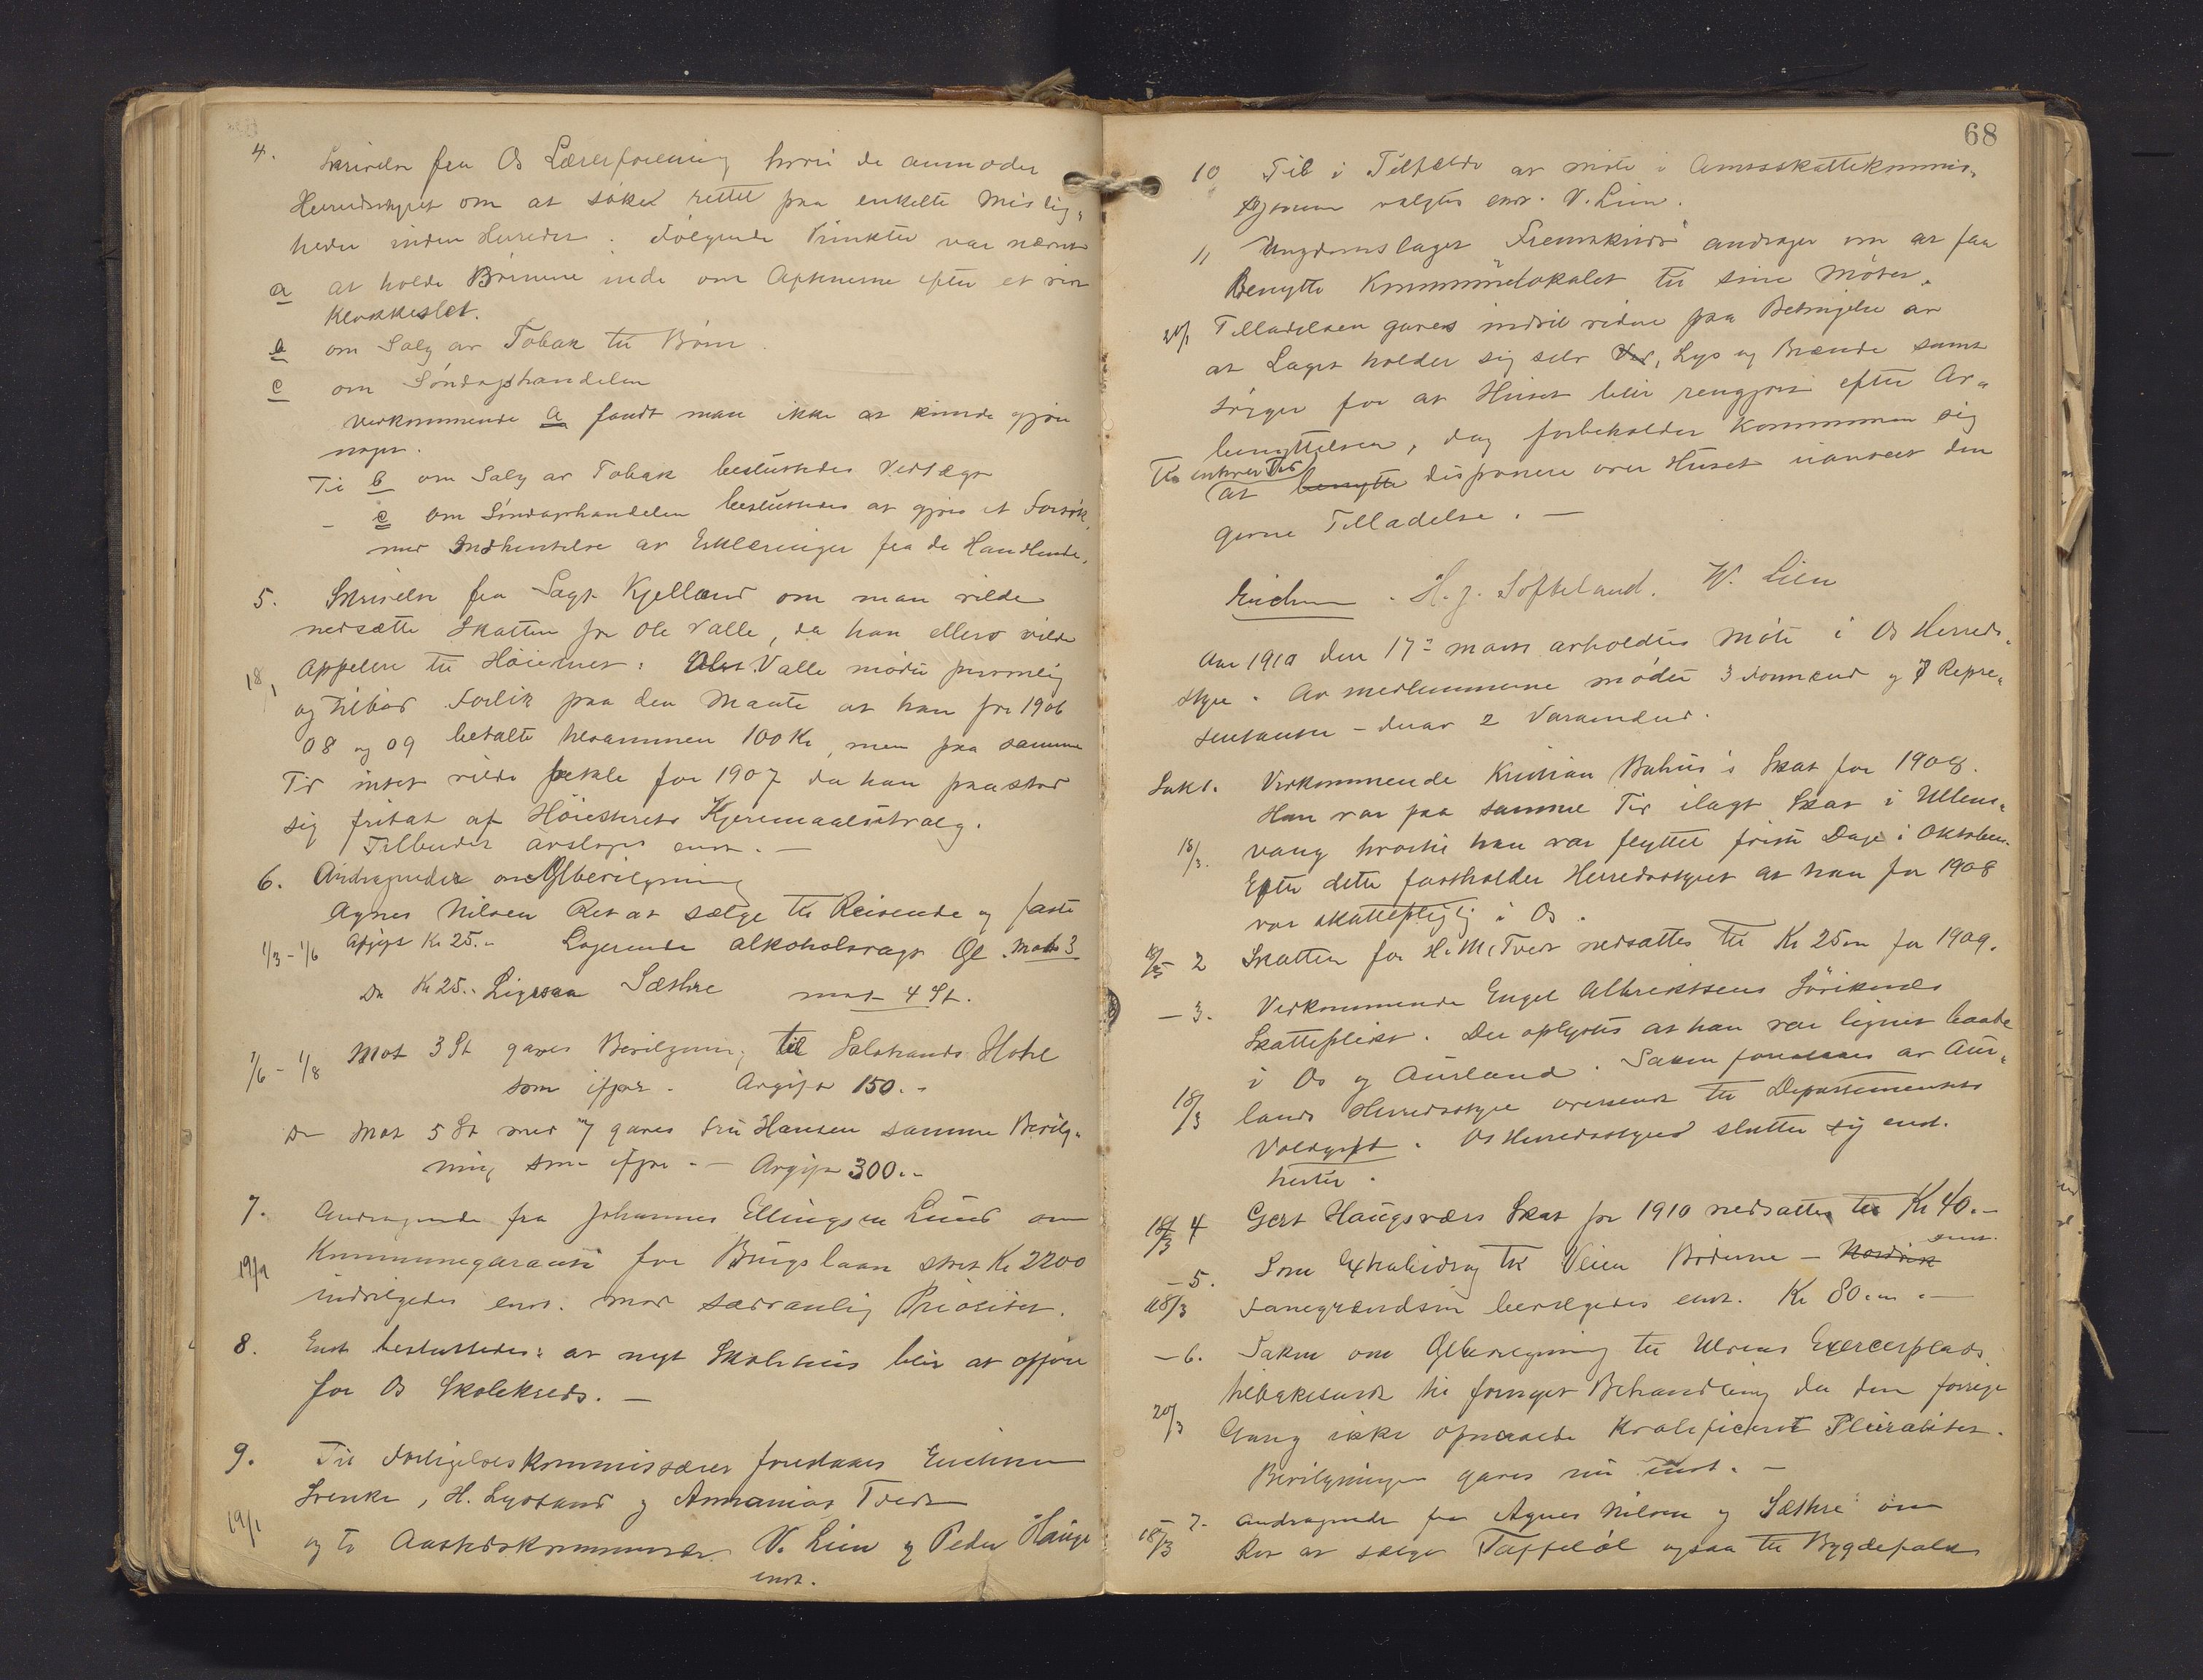 4. Skrivelse fra Os Lærerforening hvori de anmoder
Herredsstyret om at søke rettet paa enkelte Mislig-
heder inden Herredet. Følgende Punkter var nævnt
a at holde Børnene inde om Aftnerne efter et vist
Klokkeslet.
b om Salg av Tobak til Børn.
c om Søndagshandelen
Vedkommende a fandt man ikke at kunde gjøre
noget.
Til b om Salg av Tobak besluttedes Vedtægt
- c om Søndagshandelen besluttedes at gjøre et Forsøk
med Indhentelse av Erklæringer fra de Handlende.
5. Skrivelse fra Sagf. Kjelland om man vilde
nedsætte Skatten for Ole Valle, da han ellers vilde
18/1 appelere til Høiesteret: Valle mødte personlig
og tilbød Forlik paa den Maate at han for 1906
08 og 09 betalte tilsammen 100 Kr, men paa samme
Tid intet vilde betale for 1907 da han paastod
sig fritat af Høiesterets Kjæremaalsutvalg.
Tilbudet avsloges enst. -
6. Andragender om Ølbevilgning
Agnes Nilsen Ret at sælge til Reisende og faste
1/3 - 1/6 Afgift Kr 25.- Logerende alkoholsvagt Øl. Mod 3
Do Kr 25.- Ligesaa Sæthre mod 4 St.
1/6 - 1/8 Mot 3 St gaves Bevilgning til Solstrands Hotel
som ifjor - Avgift 150.-
Do Mot 5 St med 7 gaves Fru Hansen samme Bevilg-
ning som ifjor. - Avgift 300.-
7. Andragende fra Johannes Ellingsen Lund om
Kommunegaranti for Brugslaan stort Kr 2200
19/1 indvilgedes enst. mod sædvanlig Prioritet.
8. Enst besluttedes: at nyt Skolehus blir at opføre
for Os Skolekreds. -
9. Til Forligelseskommissærer foreslaaes Erichsen
Svenke, H. Lysland og Ammanias Tveit
19/1 og til Aastedskommissær V. Lien og Peder Hauge
enst.
68
10 Til i Tilfælde at møte i Amtsskattekommis-
sjonen valgtes enst. V. Lien.
11 Ungdomslaget "Fremskridt" andrager om at faa
Benytte Kommunelokalet til sine Møter.
21/1 Tilladelsen gaves indtil videre paa Betingelse av
at Laget holder sig selv Ved, Lys og Brænde samt
sørger for at Huset blir rengjort efter Av-
benyttelsen, dog forbeholder Kommunen sig
til enhver Tid
at benytte disponere over Huset uanseet den
givne Tilladelse. -
Erichsen. H. J. Søfteland. W. Lien
Aar 1910 den 17de mars avholdtes Møte i Os Herreds-
styre. Av medlemmerne mødte 3 Formænd og 7 Repre-
sentanter - derav 2 Varamænd.
Sak 1. Vedkommende Kristian Buhus's Skat for 1908.
Han var paa samme Tid ilagt Skat i Ullens-
18/3 vang hvortil han var flyttet første Dage i Oktober.
Efter dette fastholder Herredsstyret at han for 1908
var skattepligtig i Os.
18/3 2 Skatten for H. M. Tveit nedsattes til Kr 25 for 1909.
- 3. Vedkommende Engel Albrektsens Søviknes
Skatteplikt. Det oplystes at han var lignet baade
i Os og Aurland. Saken av Aur-
18/3 lands Herredsstyre oversendt til Departementets
Voldgift. Os Herredsstyre slutter sig enst.
hertil.
18/3 4 Gert Haugsværs Skat for 1910 nedsattes til Kr 40.-
enst.
- 5. Som Extrabidrag til Veien Boderne - Nordvik
18/3 Fanegrændsen bevilgedes enst. Kr 80. -
- 6. Saken om Ølbevilgning til Ulvens Exercerplads
tilbakesendt til fornyet Behandling da den forrige
20/3 Gang ikke opnaaede Kvalificeret Pluralitet.
Bevilgningen gaves nu enst. -
- 7. Andragende fra Agnes Nilsen og Sæthre om
18/3 Ret at sælge Taffeløl ogsaa til Bygdefolk